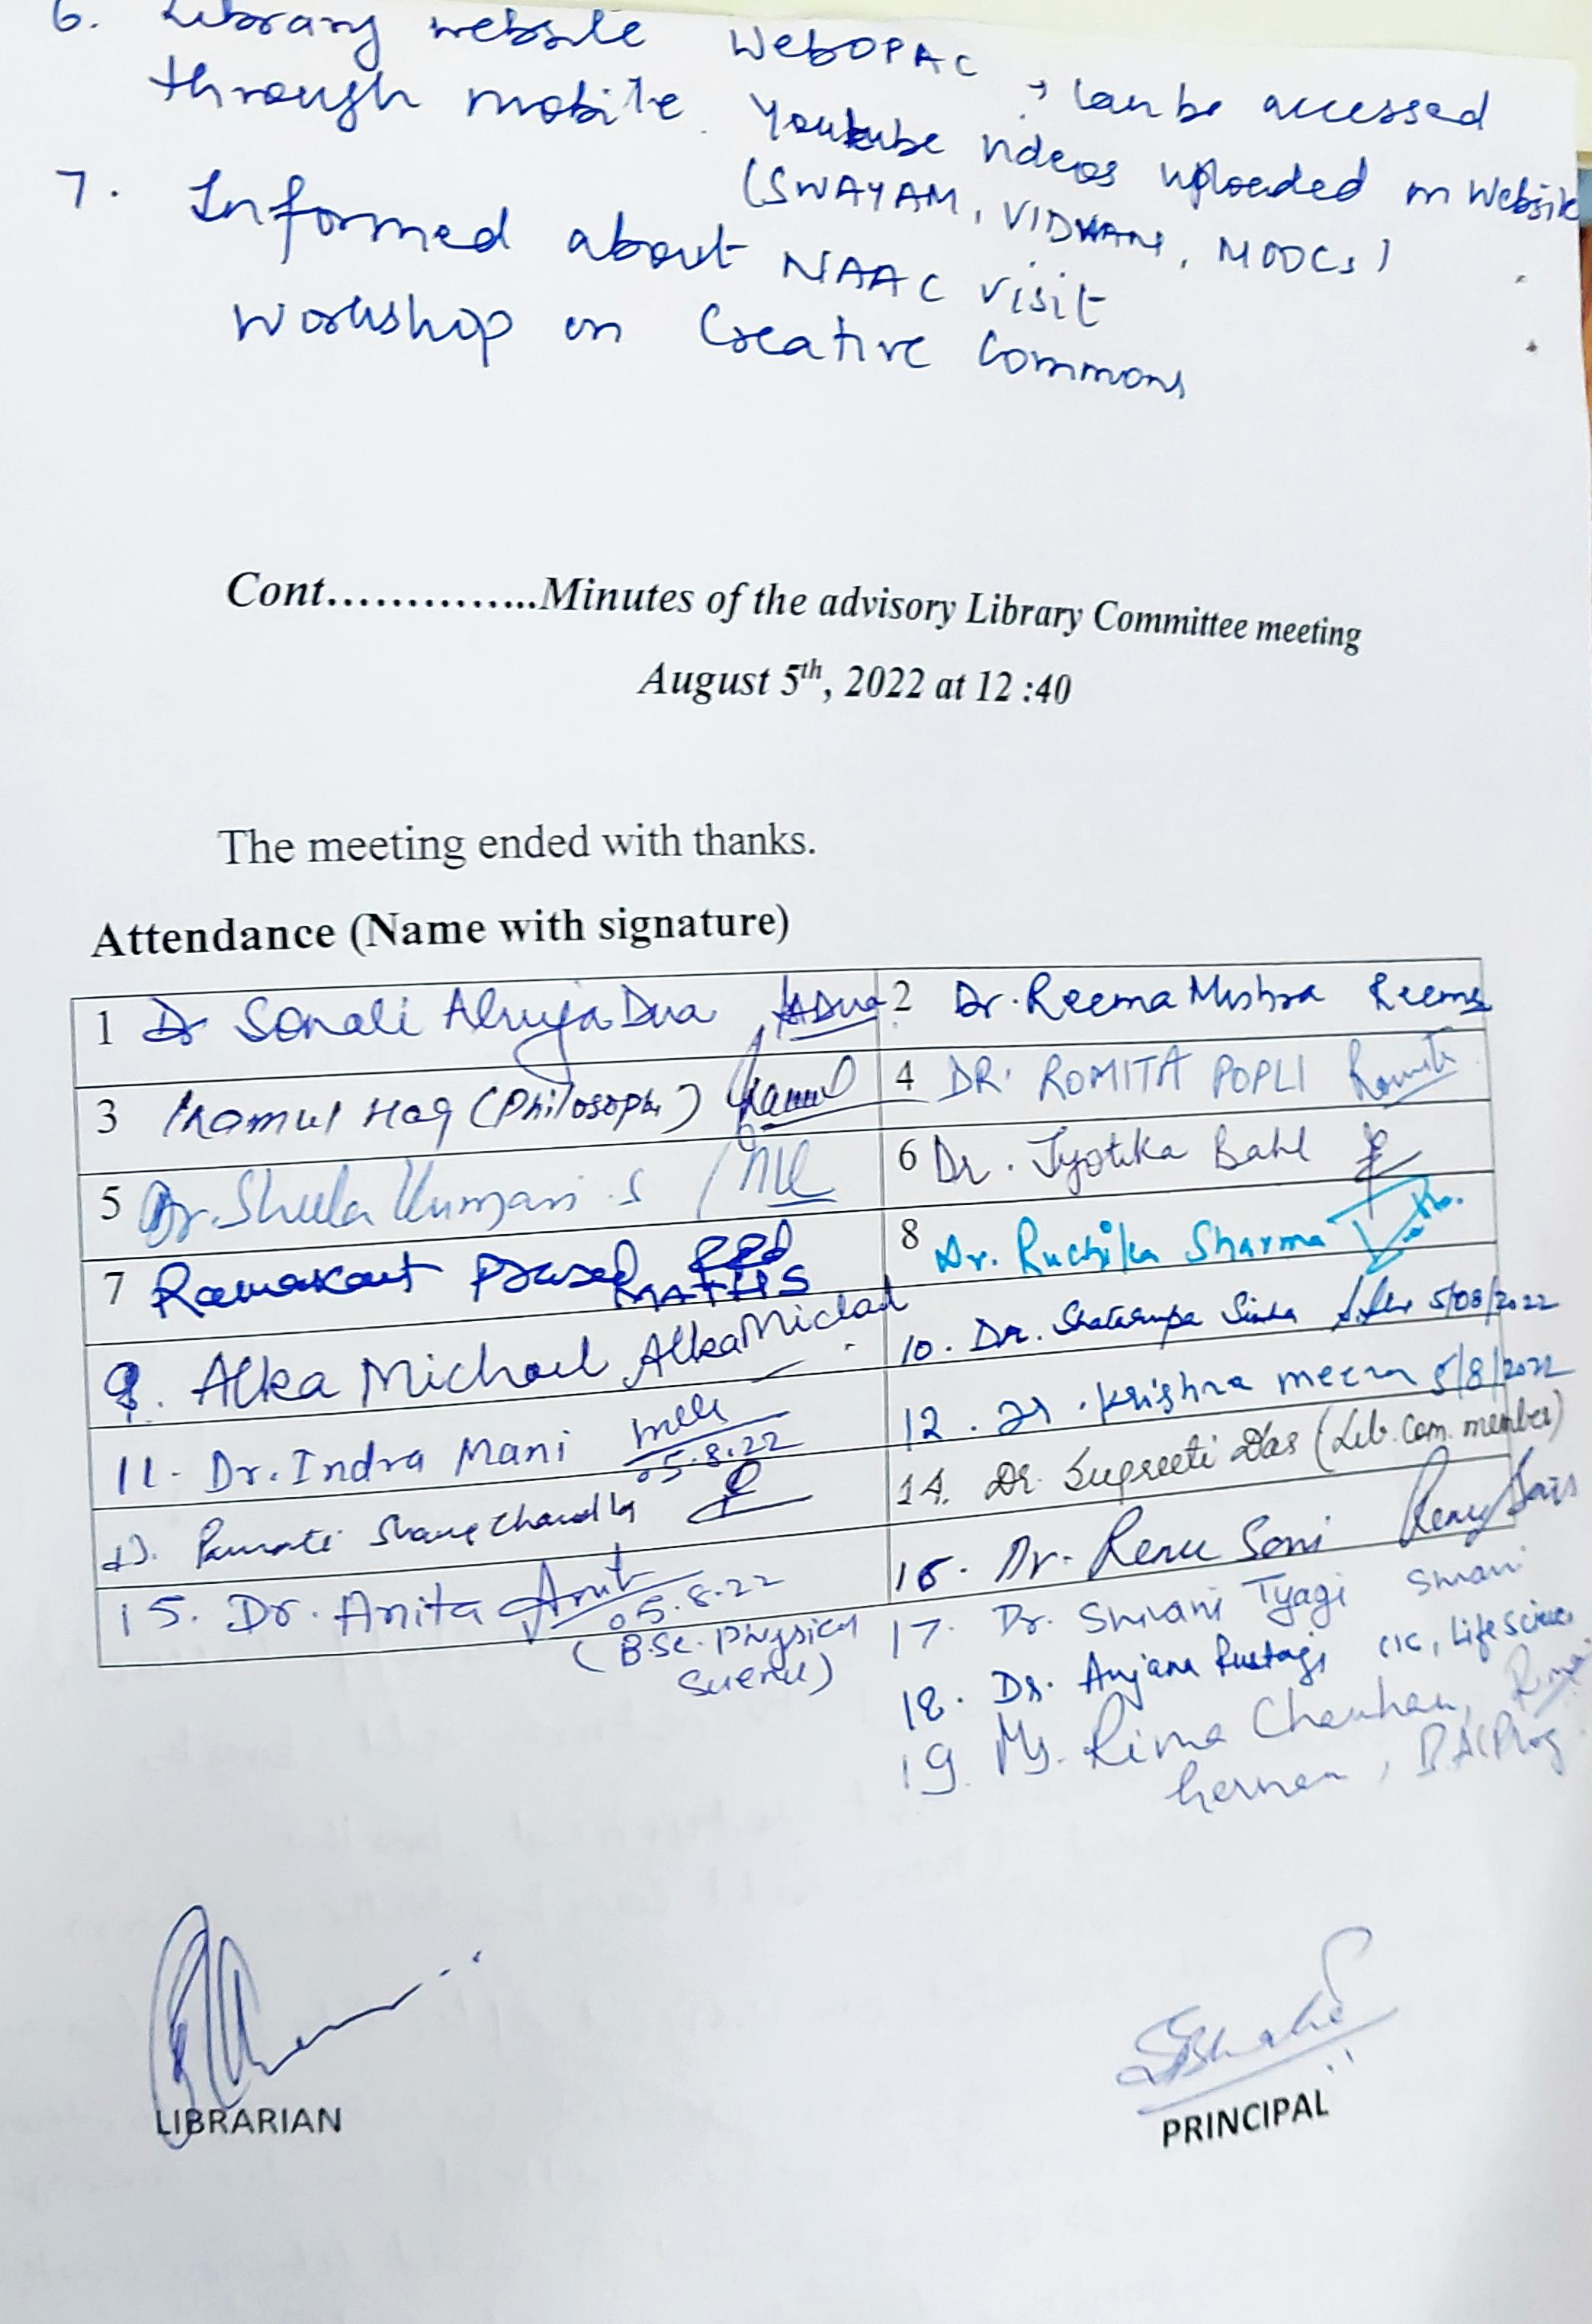 6. Library website WebOPAC, can be accessed
through mobile. Youtube videos uploaded on Website
(SWAYAM, VIDWANS, MOOCs)
7. Informed about NAAC visit
Workshop on Creative Commons
Cont…………..Minutes of the advisory Library Committee meeting
August 5th, 2022 at 12 :40
The meeting ended with thanks.
Attendance (Name with signature)
1 Dr Sonali Ahuja Dua SADua
2 Dr. Reema Mishra Reema
3 Inamul Haq (Philosophy)
4 DR. ROMITA POPLI Romita
5 Dr. Sheela Kumari S
6 Dr. Jyotika Bahl
7 Ramakant Prasad MATHS
8 Dr. Ruchika Sharma
9. Alka Michael Alka Michael
10. Dr. Shatarupa Sinha 5/08/2022
11. Dr. Indra Mani 05.8.22
12. Dr. Krishna meena 5/8/2022
13. Chandla
14. Dr. Supreeti Das (Lib. Com. member)
15. Dr. Anita 05.8.22
(B.Sc. Physical
Science)
16. Dr. Renu Soni Renu Soni
17. Dr. Shivani Tyagi Shivani
18. Dr. Anjana Rustagi TIC, Life Science
19. Ms. Rima Chauhan, Rima
German, B.A(Prog
LIBRARIAN
PRINCIPAL